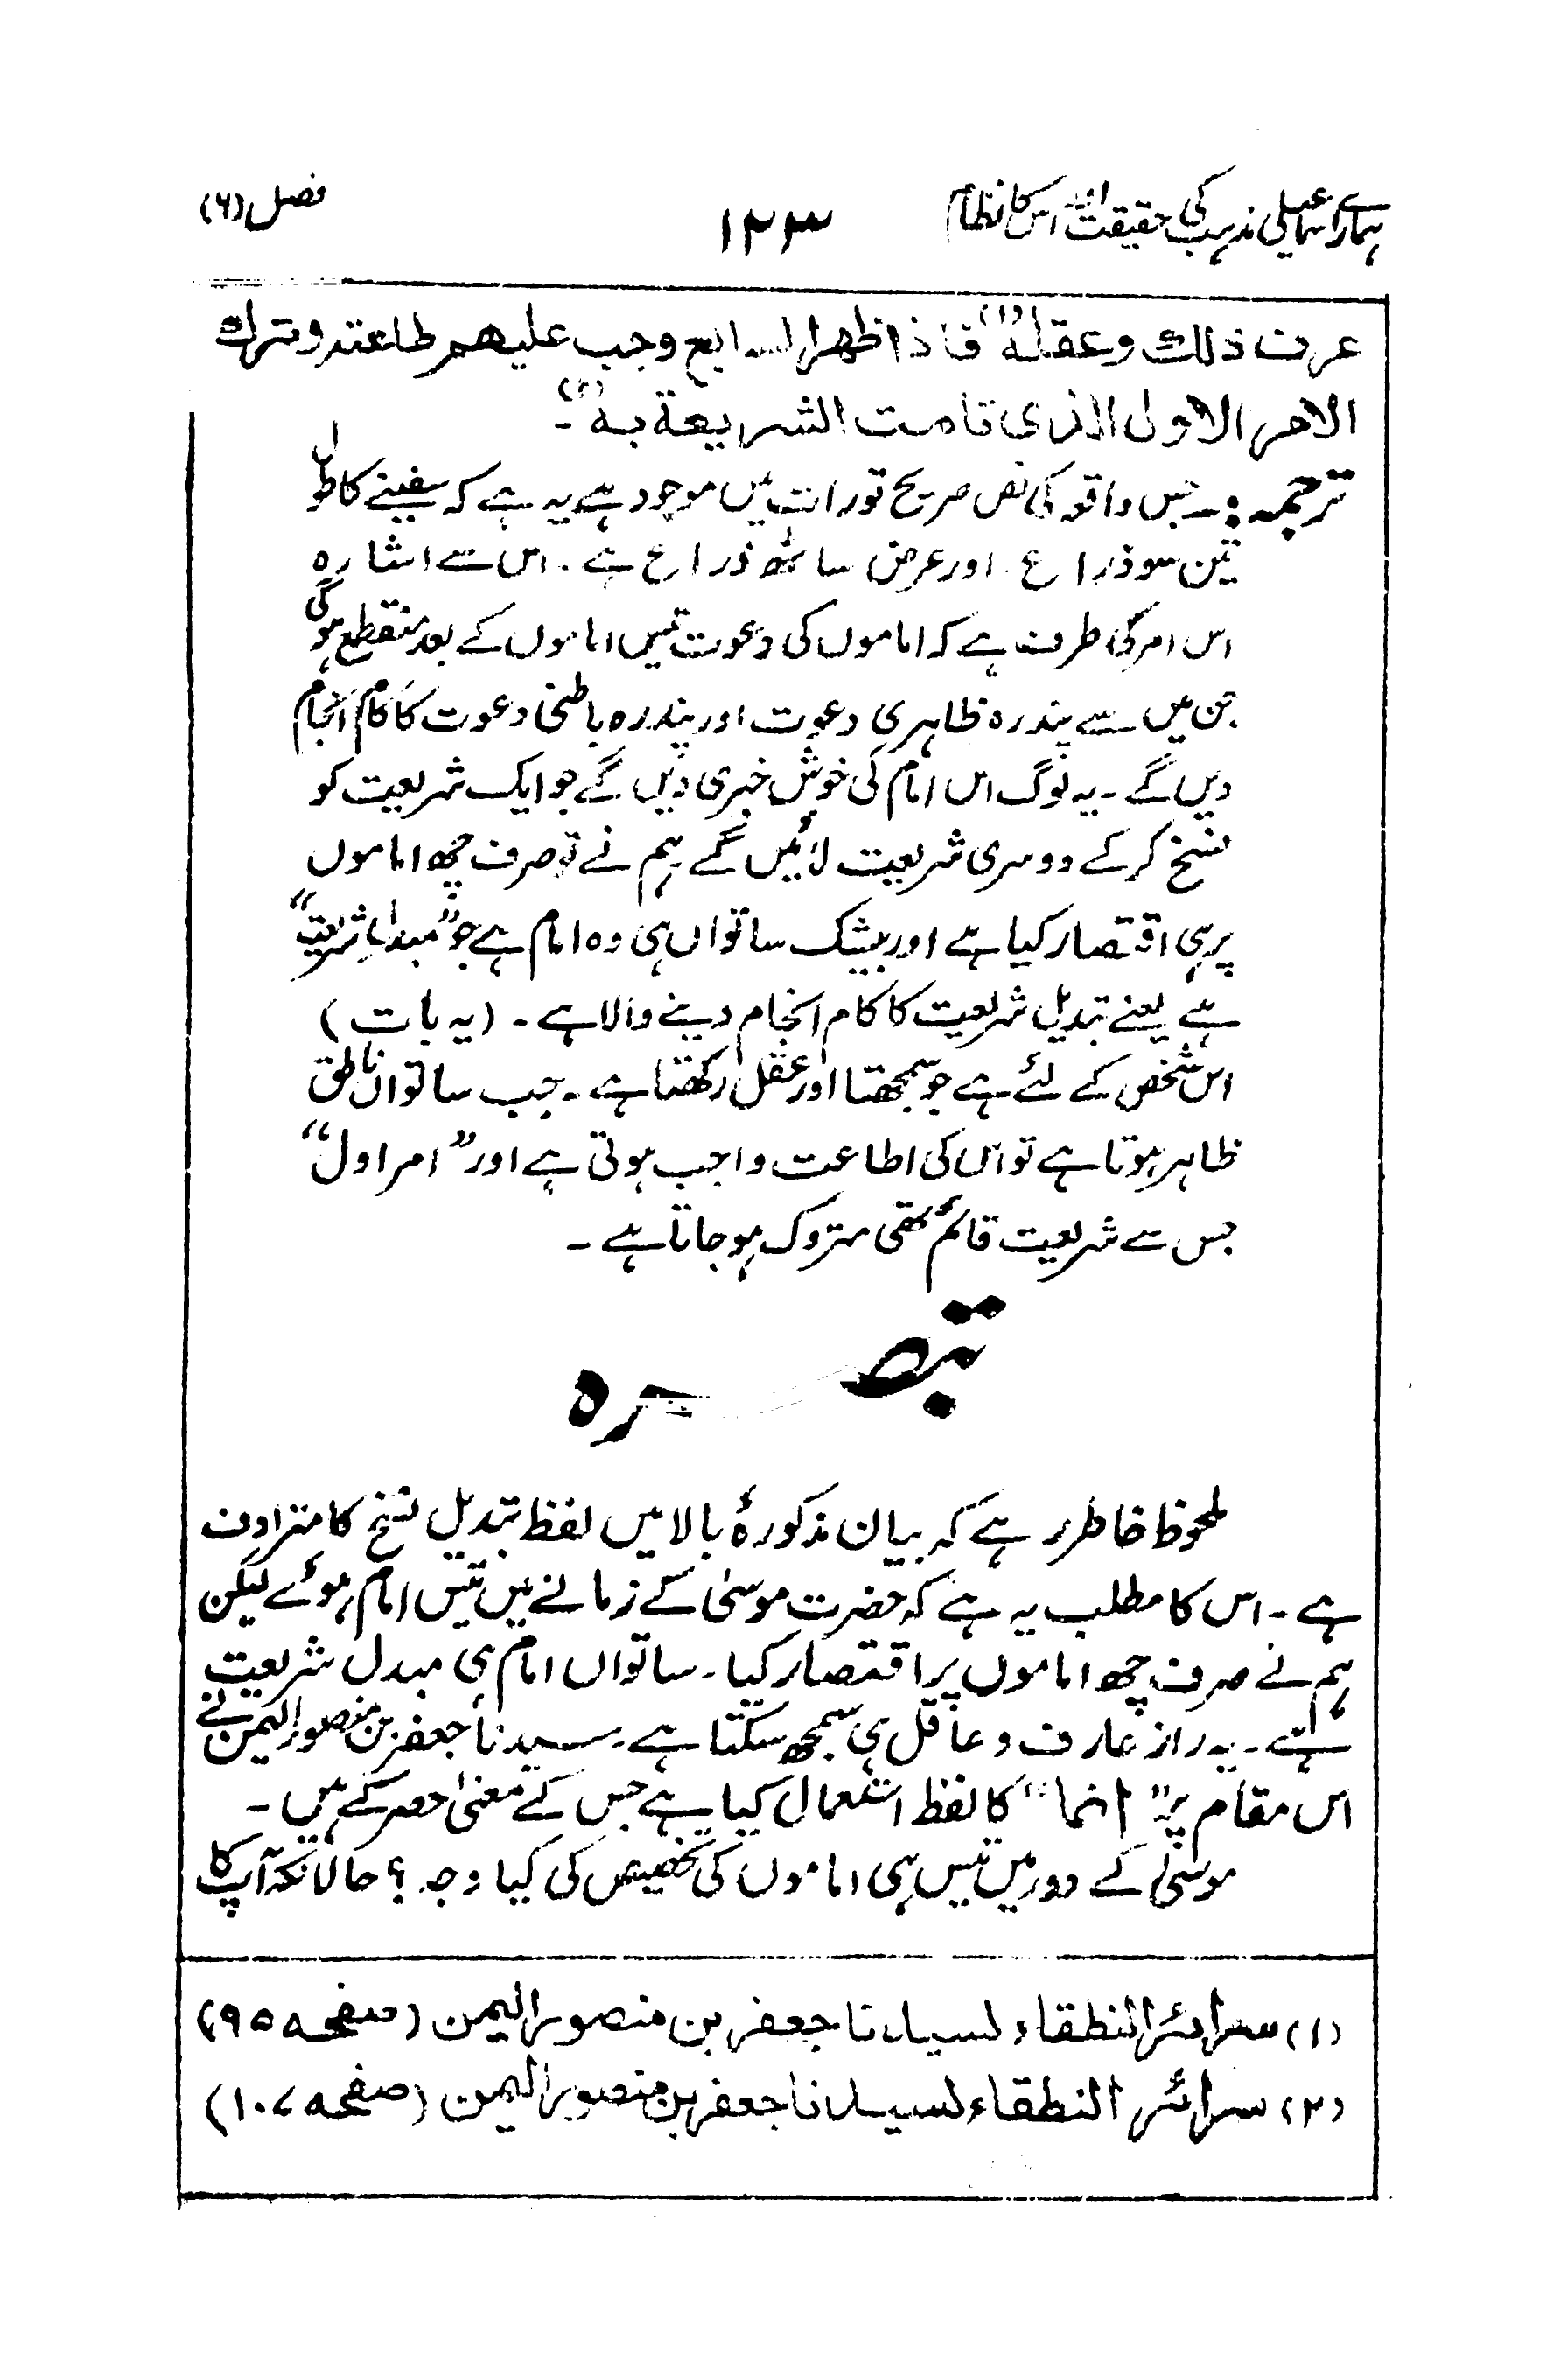 ہمارے اسماعیلی مذہب کی حقیقت اور اس کا نظام ۱۲۳ فصل (۶)
عرف ذلك وعقله (۱) فاذا ظهر السابع وجب عليهم طاعته وترك
الامر الاول الذى قامت الشريعة به (۲)۔
ترجمہ :۔ جس واقعہ کی نص صریح تورات میں موجود ہے یہ ہے کہ سفینے کا طول
تین سو ذراع اور عرض ساٹھ ذراع ہے ۔ اس سے اشارہ
اس امر کی طرف ہے کہ اماموں کی دعوت تیس اماموں کے بعد منقطع ہوگی
جن میں سے پندرہ ظاہری دعوت اور پندرہ باطنی دعوت کا کام انجام
دیں گے ۔ یہ لوگ اس امام کی خوش خبری دیں گے جو ایک شریعت کو
نسخ کرکے دوسری شریعت لائیں گے ہم نے تو صرف چھ اماموں
پر ہی اقتصار کیا ہے اور بیشک ساتواں ہی وہ امام ہے جو ”مبدل شریعت“
ہے یعنے تبدیل شریعت کا کام انجام دینے والا ہے ۔ (یہ بات)
اس شخص کے لئے ہے جو سمجھتا اور عقل رکھتا ہے ۔ جب ساتواں ناطق
ظاہر ہوتا ہے تو اس کی اطاعت واجب ہوتی ہے اور ”امر اول“
جس سے شریعت قائم تھی متروک ہو جاتا ہے ۔
تبصرہ
ملحوظ خاطر رہے کہ بیان مذکورۂ بالا میں لفظ تبدیل نسخ کا مترادف
ہے ۔ اس کا مطلب یہ ہے کہ حضرت موسیٰ کے زمانے میں تیس امام ہوئے لیکن
ہم نے صرف چھ اماموں پر اقتصار کیا ۔ ساتواں امام ہی مبدل شریعت
ہے ۔ یہ راز عارف و عاقل ہی سمجھ سکتا ہے ۔ سیدنا جعفر بن منصور الیمن نے
اس مقام پر ”انما“ کا لفظ استعمال کیا ہے جس کے معنیٰ حصر کے ہیں ۔
موسیٰ کے دور میں تیس ہی اماموں کی تخصیص کی کیا وجہ ؟ حالانکہ آپ کا
(۱) سرائر النطقاء لسیدنا جعفر بن منصور الیمن (صفحہ ۹۵)
(۲) سرائر النطقاء لسیدنا جعفر بن منصور الیمن (صفحہ ۱۰۷)